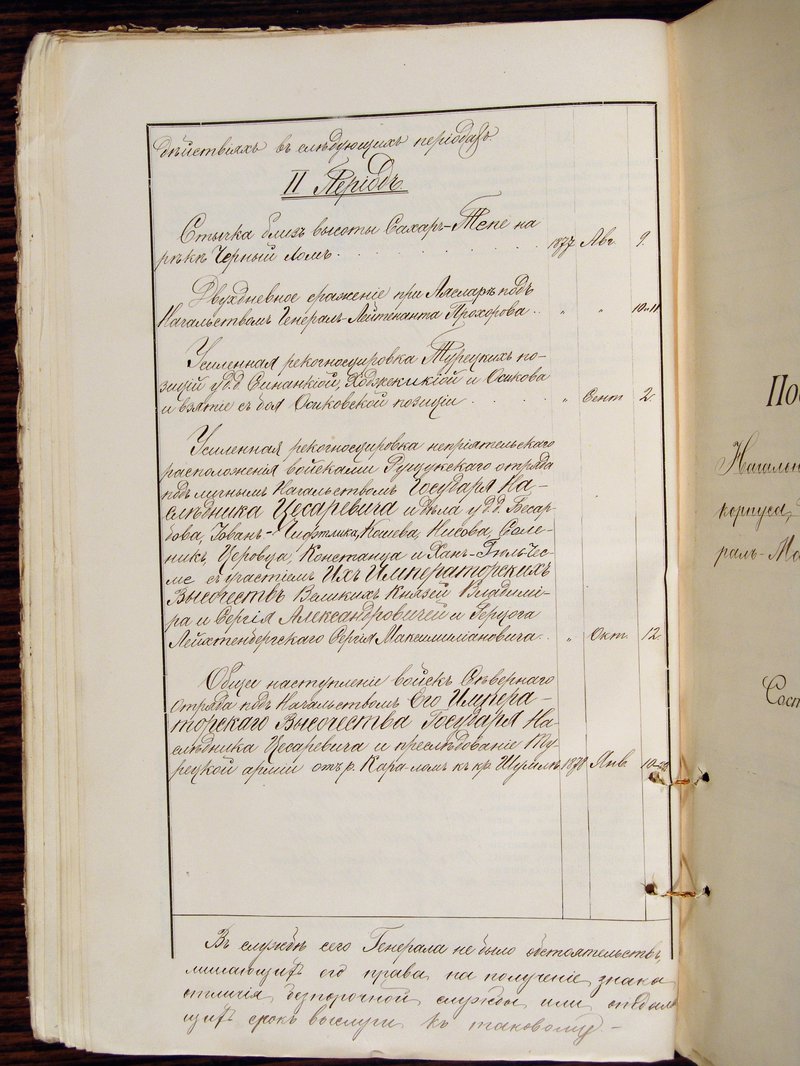 дѣйствіяхъ въ слѣдующихъ періодахъ.
II Періодъ.
Стычка близъ высоты Сахаръ-Тепе на
рѣкѣ Черный Ломъ . . . 1877 Авг. 9.
Двухдневное сраженіе при Аясларѣ подъ
Начальствомъ Генералъ-Лейтенанта Прохорова . . „ „ 10 и 11
Усиленная рекогносцировка Турецкихъ по-
зицій у д.д. Синанкіой, и Осикова
и взятіе съ боя Осиковской позиціи . . . „ Сент. 2.
Усиленная рекогносцировка непріятельскаго
расположенія войсками Рущукскаго отряда
подъ личнымъ Начальствомъ Государя На-
слѣдника Цесаревича и дѣла у д.д. Бесар-
бова, Іованъ-Чифтлика, Кошева, Нисова, Соле-
никъ, Церовца, Констанца и Ханъ-Гюль-Чес-
ме съ участіемъ Ихъ Императорскихъ
Высочествъ Великихъ Князей Владимі-
ра и Сергія Александровичей и Герцога
Лейхтенбергскаго Сергія Максимиліановича . . „ Окт. 12.
Общее наступленіе войскъ Сѣвернаго
отряда подъ Начальствомъ Его Импера-
торскаго Высочества Государя На-
слѣдника Цесаревича и преслѣдованіе Ту-
рецкой арміи отъ р. Кара-ломъ къ кр. Шумлѣ 1878 Янв.
Въ службѣ сего Генерала не было обстоятельствъ,
лишающихъ его права на полученіе знака
отличія безпорочной службы или отдаля
щихъ срокъ выслуги къ таковому. —
Пос
Начальн
корпуса,
ралъ-Ма
Сост